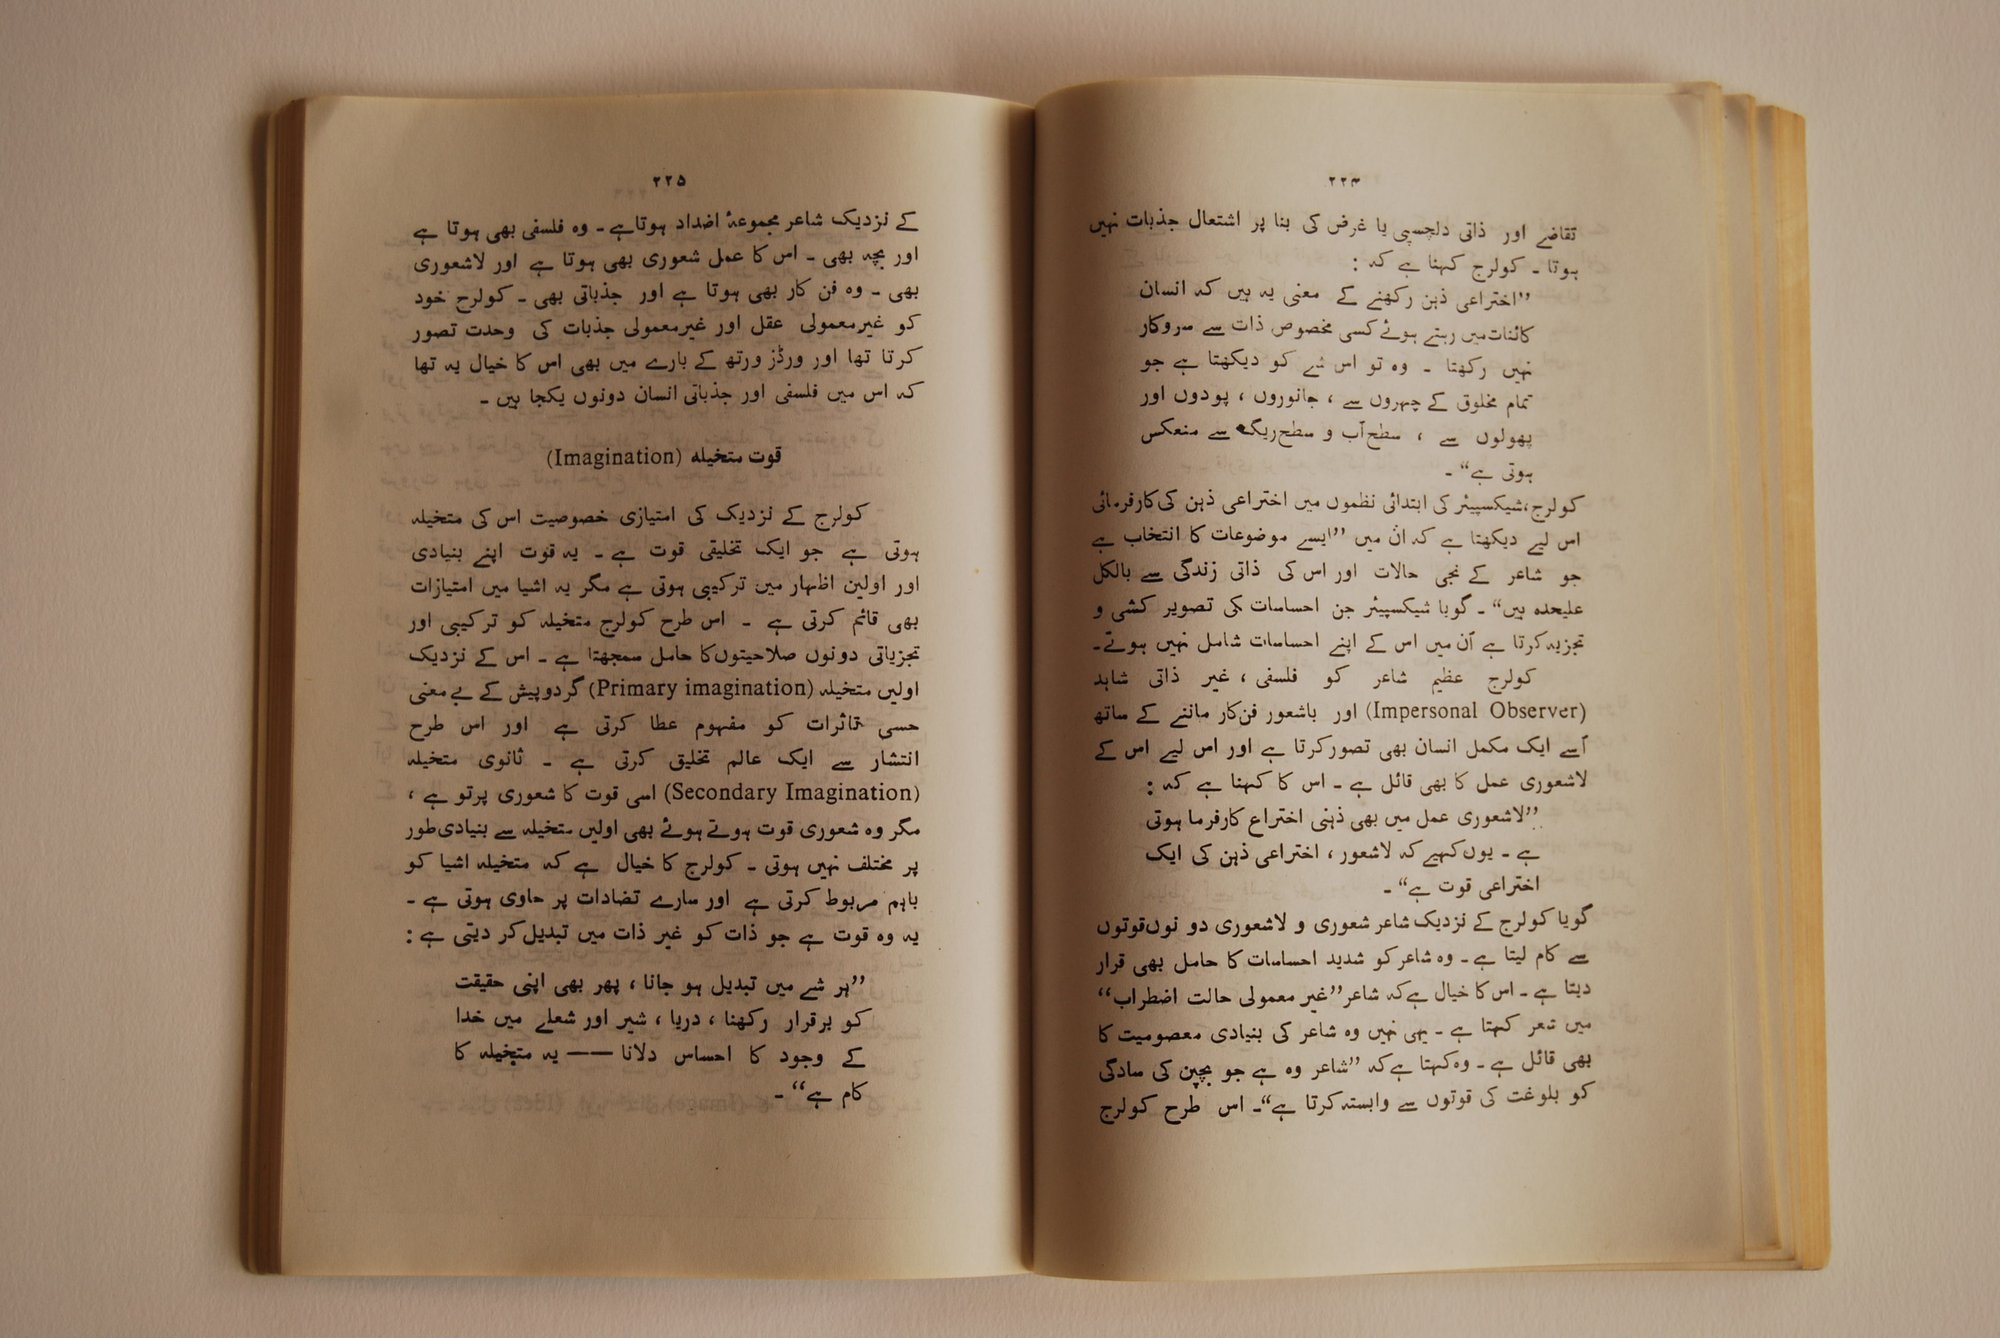 ۲۲۴
تقاضے اور ذاتی دلچسپی یا غرض کی بنا پر اشتعال جذبات نہیں
ہوتا ۔ کولرج کہتا ہے کہ :
”اختراعی ذہن رکھنے کے معنی یہ ہیں کہ انسان
کائنات میں رہتے ہوئے کسی مخصوص ذات سے سروکار
نہیں رکھتا ۔ وہ تو اس شے کو دیکھتا ہے جو
تمام مخلوق کے چہروں سے ، جانوروں ، پودوں اور
پھولوں سے ، سطح آب و سطح ریگ سے منعکس
ہوتی ہے“ ۔
کولرج، شیکسپیئر کی ابتدائی نظموں میں اختراعی ذہن کی کارفرمائی
اس لیے دیکھتا ہے کہ ان میں ”ایسے موضوعات کا انتخاب ہے
جو شاعر کے نجی حالات اور اس کی ذاتی زندگی سے بالکل
علیحدہ ہیں“ ۔ گویا شیکسپیئر جن احساسات کی تصویر کشی و
تجزیہ کرتا ہے اُن میں اس کے اپنے احساسات شامل نہیں ہوتے۔
کولرج عظیم شاعر کو فلسفی ، غیر ذاتی شاہد
(Impersonal Observer) اور باشعور فن کار ماننے کے ساتھ
اُسے ایک مکمل انسان بھی تصور کرتا ہے اور اس لیے اس کے
لاشعوری عمل کا بھی قائل ہے ۔ اس کا کہنا ہے کہ :
”لاشعوری عمل میں بھی ذہنی اختراع کارفرما ہوتی
ہے ۔ یوں کہیے کہ لاشعور ، اختراعی ذہن کی ایک
اختراعی قوت ہے“ ۔
گویا کولرج کے نزدیک شاعر شعوری و لاشعوری دو نوں قوتوں
سے کام لیتا ہے ۔ وہ شاعر کو شدید احساسات کا حامل بھی قرار
دیتا ہے ۔ اس کا خیال ہے کہ شاعر ”غیر معمولی حالت اضطراب“
میں شعر کہتا ہے ۔ یہی نہیں وہ شاعر کی بنیادی معصومیت کا
بھی قائل ہے ۔ وہ کہتا ہے کہ ”شاعر وہ ہے جو بچپن کی سادگی
کو بلوغت کی قوتوں سے وابستہ کرتا ہے“۔ اس طرح کولرج
۲۲۵
کے نزدیک شاعر مجموعۂ اضداد ہوتا ہے ۔ وہ فلسفی بھی ہوتا ہے
اور بچہ بھی ۔ اس کا عمل شعوری بھی ہوتا ہے اور لاشعوری
بھی ۔ وہ فن کار بھی ہوتا ہے اور جذباتی بھی ۔ کولرج خود
کو غیر معمولی عقل اور غیر معمولی جذبات کی وحدت تصور
کرتا تھا اور ورڈز ورتھ کے بارے میں بھی اس کا خیال یہ تھا
کہ اس میں فلسفی اور جذباتی انسان دونوں یکجا ہیں ۔
قوت متخیلہ (Imagination)
کولرج کے نزدیک کی امتیازی خصوصیت اس کی متخیلہ
ہوتی ہے جو ایک تخلیقی قوت ہے ۔ یہ قوت اپنے بنیادی
اور اولین اظہار میں ترکیبی ہوتی ہے مگر یہ اشیا میں امتیازات
بھی قائم کرتی ہے ۔ اس طرح کولرج متخیلہ کو ترکیبی اور
تجزیاتی دونوں صلاحیتوں کا حامل سمجھتا ہے ۔ اس کے نزدیک
اولیں متخیلہ (Primary imagination) گردوپیش کے بے معنی
حسی تاثرات کو مفہوم عطا کرتی ہے اور اس طرح
انتشار سے ایک عالم تخلیق کرتی ہے ۔ ثانوی متخیلہ
(Secondary Imagination) اسی قوت کا شعوری پرتو ہے ،
مگر وہ شعوری قوت ہوتے ہوئے بھی اولیں متخیلہ سے بنیادی طور
پر مختلف نہیں ہوتی ۔ کولرج کا خیال ہے کہ متخیلہ اشیا کو
باہم مربوط کرتی ہے اور سارے تضادات پر حاوی ہوتی ہے ۔
یہ وہ قوت ہے جو ذات کو غیر ذات میں تبدیل کر دیتی ہے :
”ہر شے میں تبدیل ہو جانا ، پھر بھی اپنی حقیقت
کو برقرار رکھنا ، دریا ، شیر اور شعلے میں خدا
کے وجود کا احساس دلانا —— یہ متخیلہ کا
کام ہے“ ۔